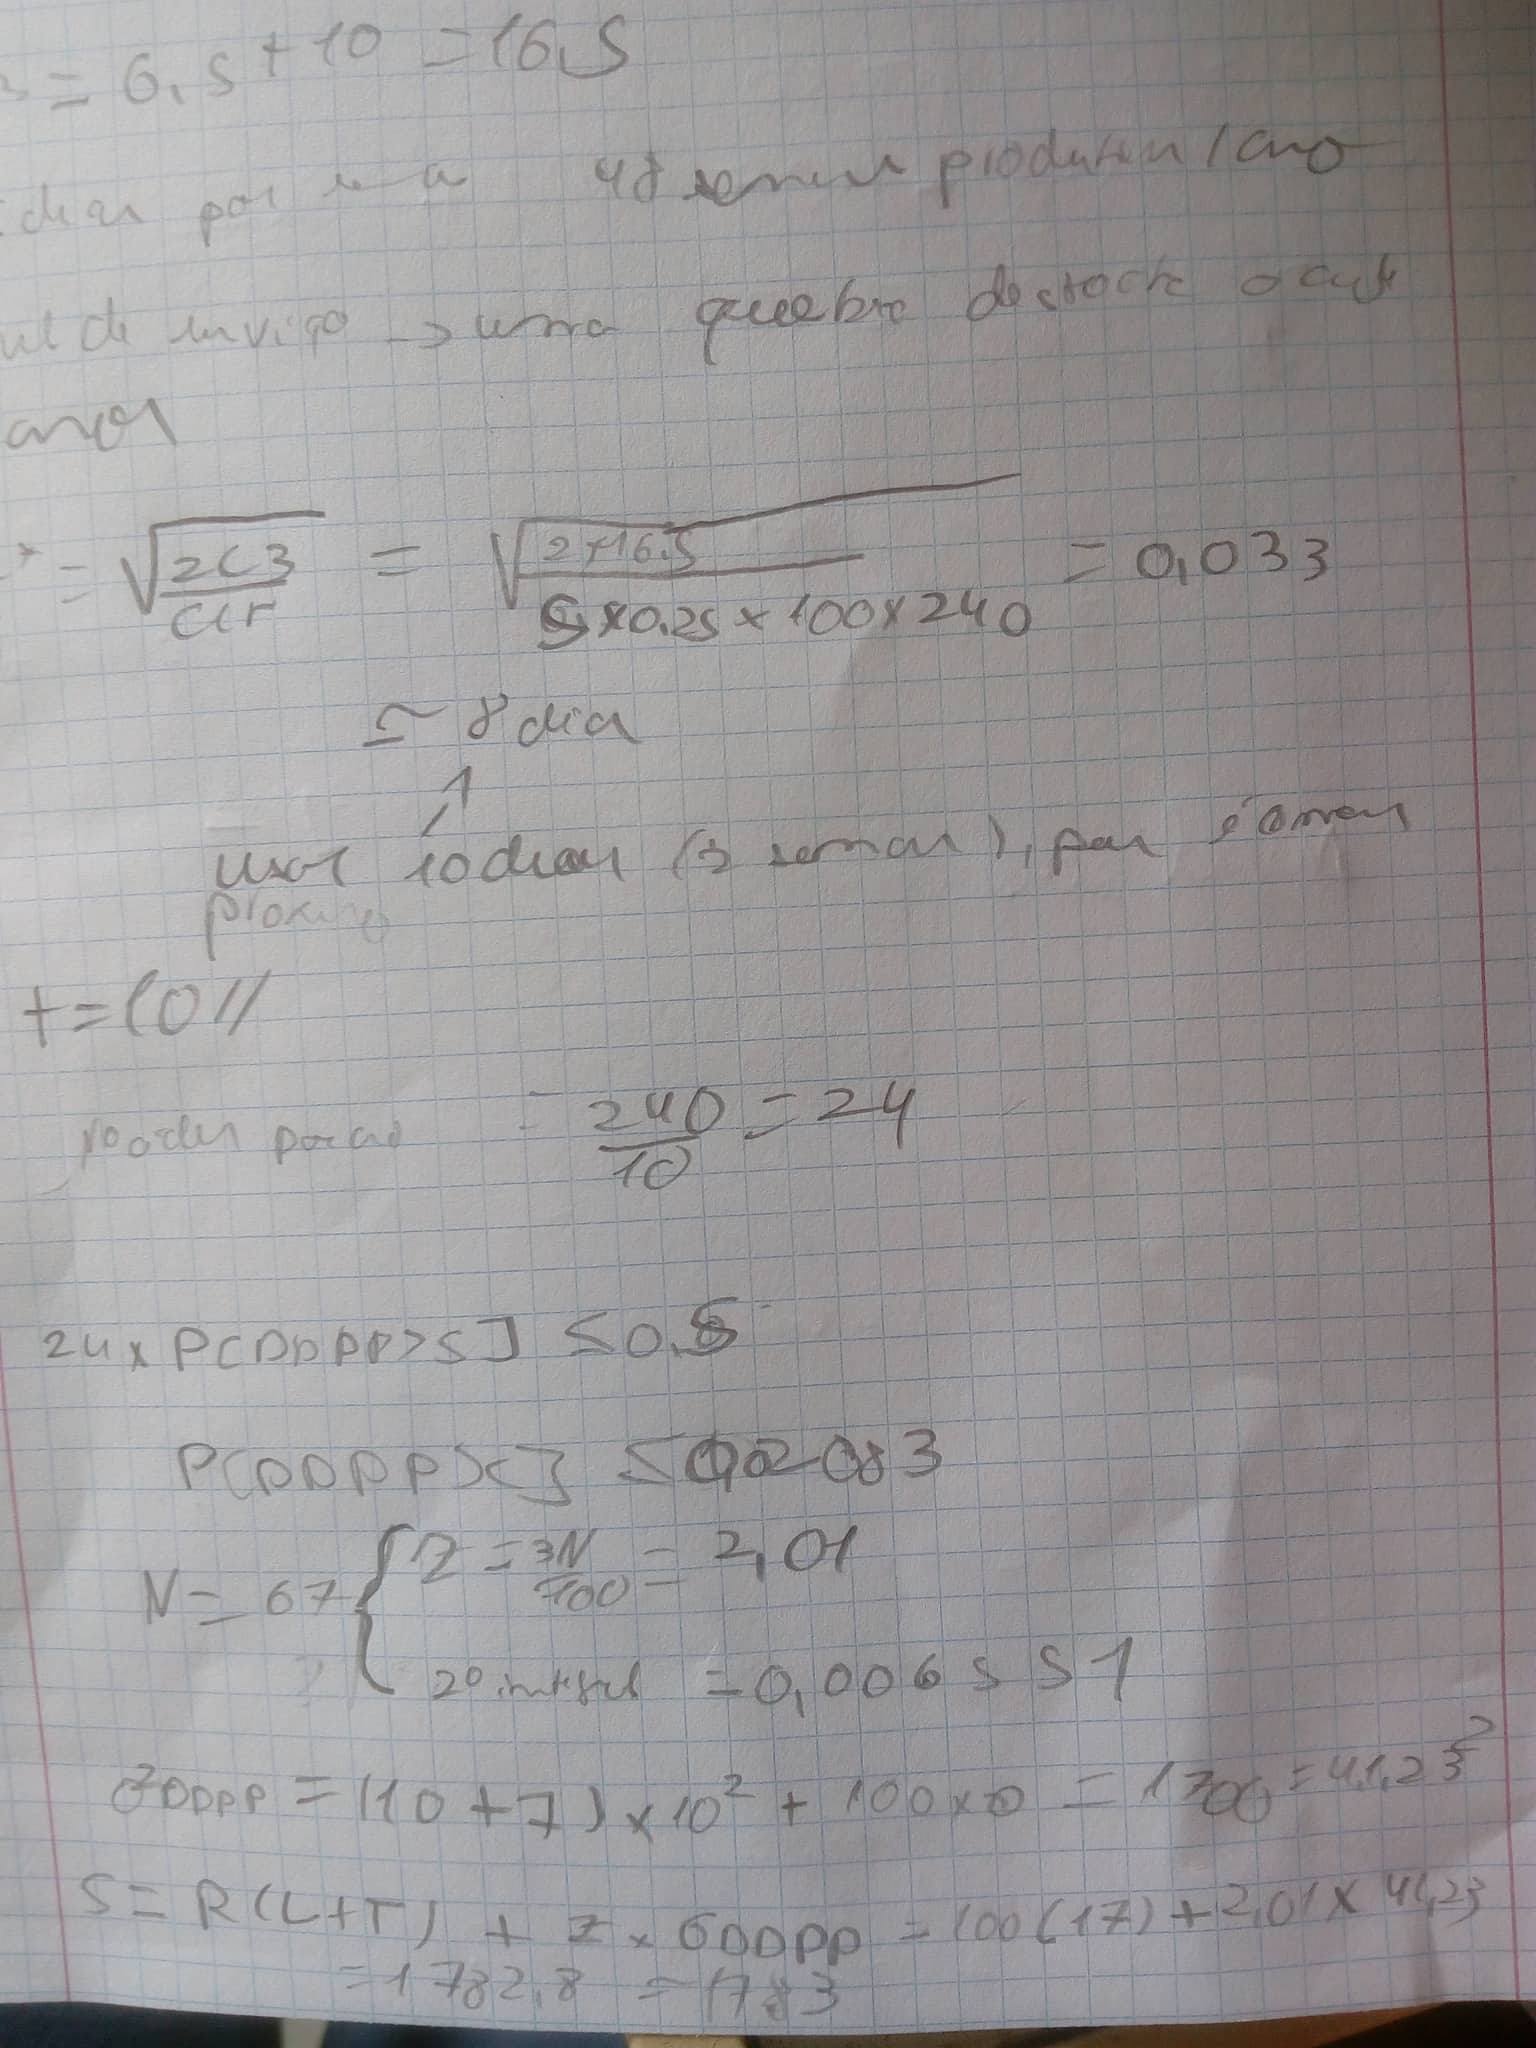 = 6,5 + 10 = 16,5
dias por 48 produtivas / ano
de serviço → uma quebra de stock ocorre
anos
= √(2C3/C1r) = √(2×16.5/(5×0.25×100×240)) = 0,033
≃ 8 dia
usar 10 dias (2 semanas), por
próximo
t = 10 //
por ano = 240/10 = 24
24 x P[DDPP>S] ≤ 0.5
P[DDPP>S] ≤ 0,02083
N = 67 { Z = 3N/100 = 2,01
2º integral = 0,006 ≤ 1
σ²DDPP = (10 + 7) × 10² + 100 x 0 = 1700 = 41,23²
S = R(L+T) + Z × σDDPP = 100(17) + 2,01 × 41,23
= 1782,8 = 1783